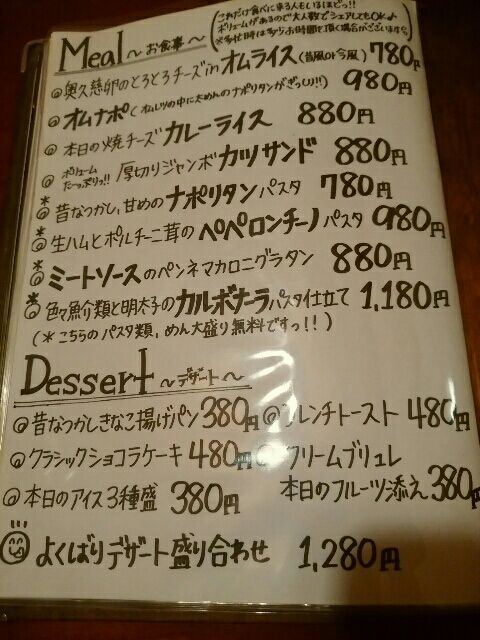 Meal ～お食事～
(これだけ食べに来る人もいるほど!!
ボリュームがあるので大人数でシェアしてもOK♪
※多忙時は多少お時間を頂く場合がございますが)
◎奥久慈卵のとろとろチーズinオムライス(昔風or今風) 780円
◎オムナポ(オムレツの中に太めんのナポリタンがぎっしり!!) 980円
◎本日の焼チーズカレーライス 880円
◎ボリュームたーっぷりっ!! 厚切りジャンボカツサンド 880円
*◎昔なつかし、甘めのナポリタンパスタ 780円
*◎生ハムとポルチーニ茸のペペロンチーノパスタ 980円
*◎ミートソースのペンネマカロニグラタン 880円
*◎色々魚介類と明太子のカルボナーラパスタ仕立て 1,180円
(*こちらのパスタ類、めん大盛り無料ですっ!!)
Dessert ～デザート～
◎昔なつかしきなこ揚げパン 380円 ◎フレンチトースト 480円
◎クラシックショコラケーキ 480円 ◎クリームブリュレ
本日のフルーツ添え 380円
◎本日のアイス3種盛 380円
よくばりデザート盛り合わせ 1,280円